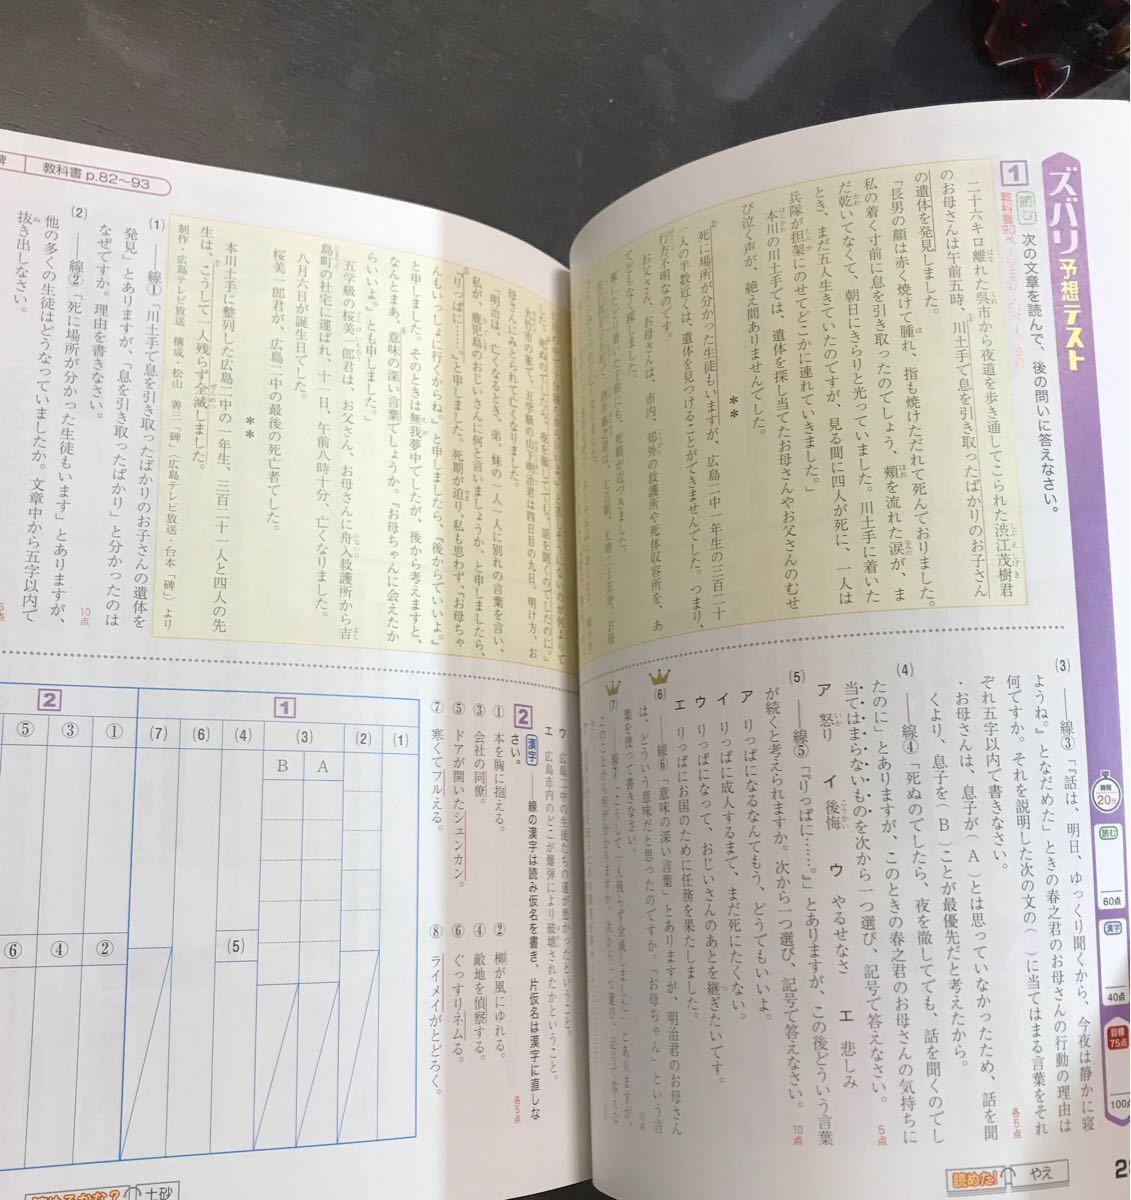 ズバリ予想テスト
時間
20分
読む
60点
漢字
40点
目標
75点
100点
1
読む
次の文章を読んで、後の問いに答えなさい。
二十六キロ離れた呉市から夜道を歩き通してこられた渋江茂樹君
のお母さんは午前五時、川土手で息を引き取ったばかりのお子さん
の遺体を発見しました。
「長男の顔は赤く焼けて腫れ、指も焼けただれて死んでおりました。
私の着く寸前に息を引き取ったのでしょう、頰を流れた涙が、ま
だ乾いてなくて、朝日にきらりと光っていました。川土手に着いた
とき、まだ五人生きていたのですが、見る間に四人が死に、一人は
兵隊が担架にのせてどこかに連れていきました。」
本川の川土手では、遺体を探し当てたお母さんやお父さんのむせ
び泣く声が、絶え間ありませんでした。
**
死に場所が分かった生徒もいますが、広島二中一年生の三百二十
一人の半数近くは、遺体を見つけることができませんでした。つまり、
行方不明なのです。
お父さん、お母さんは、市内、郊外の救護所や死体収容所を、あ
てどもなく探しました。
大竹市の家で、五学級の山下明治君は四日目の九日、明け方、お
母さんにみとられて亡くなりました。
「明治は、亡くなるとき、弟、妹の一人一人に別れの言葉を言い、
私が、鹿児島のおじいさんに何と言いましょうか、と申しましたら、
『りっぱに……。』と申しました。死期が迫り、私も思わず、『お母ちゃ
んもいっしょに行くからね。』と申しましたら、『後からでいいよ。』
と申しました。そのときは無我夢中でしたが、後から考えますと、
なんとまあ、意味の深い言葉でしょうか。『お母ちゃんに会えたか
らいいよ。』とも申しました。」
五学級の桜美一郎君は、お父さん、お母さんに舟入救護所から吉
島町の社宅に運ばれ、十一日、午前八時十分、亡くなりました。
八月六日が誕生日でした。
桜美一郎君が、広島二中の最後の死亡者でした。
**
本川土手に整列した広島二中の一年生、三百二十一人と四人の先
生は、こうして一人残らず全滅しました。
制作・広島テレビ放送 構成・松山 善三「碑」(広島テレビ放送・台本「碑」より
(1) ――線①「川土手で息を引き取ったばかりのお子さんの遺体を
発見」とありますが、「息を引き取ったばかり」と分かったのは
なぜですか。理由を書きなさい。
10点
(2) ――線②「死に場所が分かった生徒もいます」とありますが、
他の多くの生徒はどうなっていましたか。文章中から五字以内で
抜き出しなさい。
5点
(3) ――線③「『話は、明日、ゆっくり聞くから、今夜は静かに寝
ようね。』となだめた」ときの春之君のお母さんの行動の理由は
何ですか。それを説明した次の文の( )に当てはまる言葉をそれ
ぞれ五字以内で書きなさい。
各5点
・お母さんは、息子が(A)とは思っていなかったため、話を聞
くより、息子を(B)ことが最優先だと考えたから。
(4) ――線④「死ぬのでしたら、夜を徹してでも、話を聞くのでし
たのに」とありますが、このときの春之君のお母さんの気持ちに
当てはまらないものを次から一つ選び、記号で答えなさい。
5点
ア 怒り イ 後悔 ウ やるせなさ エ 悲しみ
(5) ――線⑤「『りっぱに……。』」とありますが、この後どういう言葉
が続くと考えられますか。次から一つ選び、記号で答えなさい。
10点
ア りっぱになるなんてもう、どうでもいいよ。
イ りっぱに成人するまで、まだ死にたくない。
ウ りっぱになって、おじいさんのあとを継ぎたいです。
エ りっぱにお国のために任務を果たしました。
(6) ――線⑥「意味の深い言葉」とありますが、明治君のお母さん
は、どういう意味だと思ったのですか。「お母ちゃん」という言
葉を使って書きなさい。
10点
(7) ――線⑦「こうして一人残らず全滅しました」とありますが、
このことから何が分かりますか。次から一つ選び、記号で答えな
ウ 広島二中の生徒たちの運が悪かったということ。
エ 広島市内のどこが爆弾により破壊されたかということ。
2
漢字
――線の漢字は読み仮名を書き、片仮名は漢字に直しな
さい。
各5点
① 本を胸に抱える。
② 柳が風にゆれる。
③ 会社の同僚。
④ 敵地を偵察する。
⑤ ドアが開いたシュンカン。
⑥ ぐっすりネムる。
⑦ 寒くてフルえる。
⑧ ライメイがとどろく。
1
(1)
(2)
(3)
A
B
(4)
(5)
(6)
(7)
2
①
②
③
④
⑤
⑥
教科書 p.82〜93
読めた!
やえ
土砂